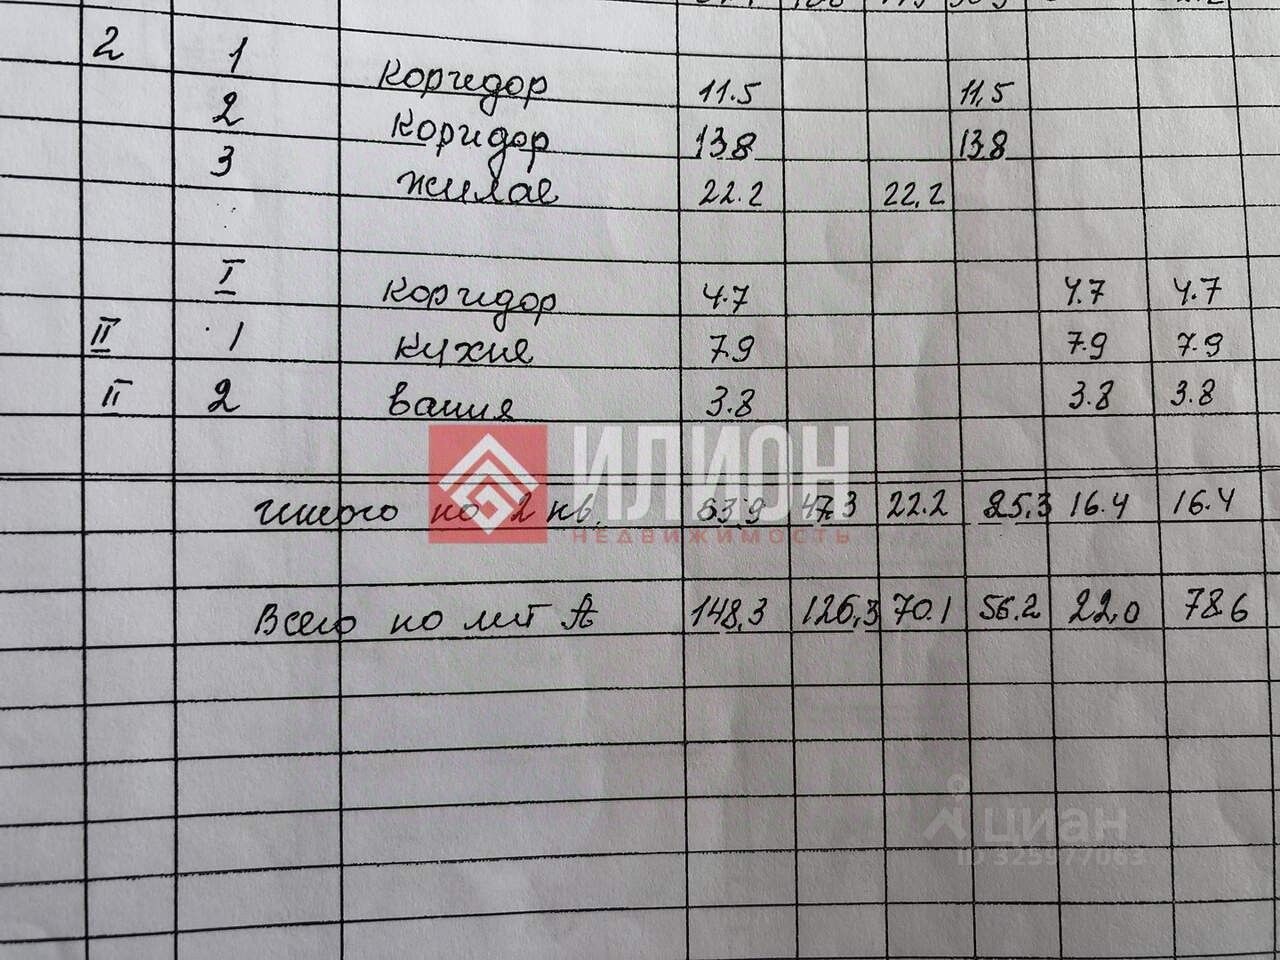 2 1 коридор 11.5 11,5
2 коридор 13.8 13.8
3 жилая 22.2 22,2
I коридор 4.7 4.7 4.7
II 1 кухня 7.9 7.9 7.9
II 2 ванная 3.8 3.8 3.8
ИЛИОН
НЕДВИЖИМОСТЬ
итого по 2 кв. 63.9 47.3 22.2 25.3 16.4 16.4
Всего по лит А 148,3 126,3 70.1 56.2 22,0 78.6
циан
ID 325977063